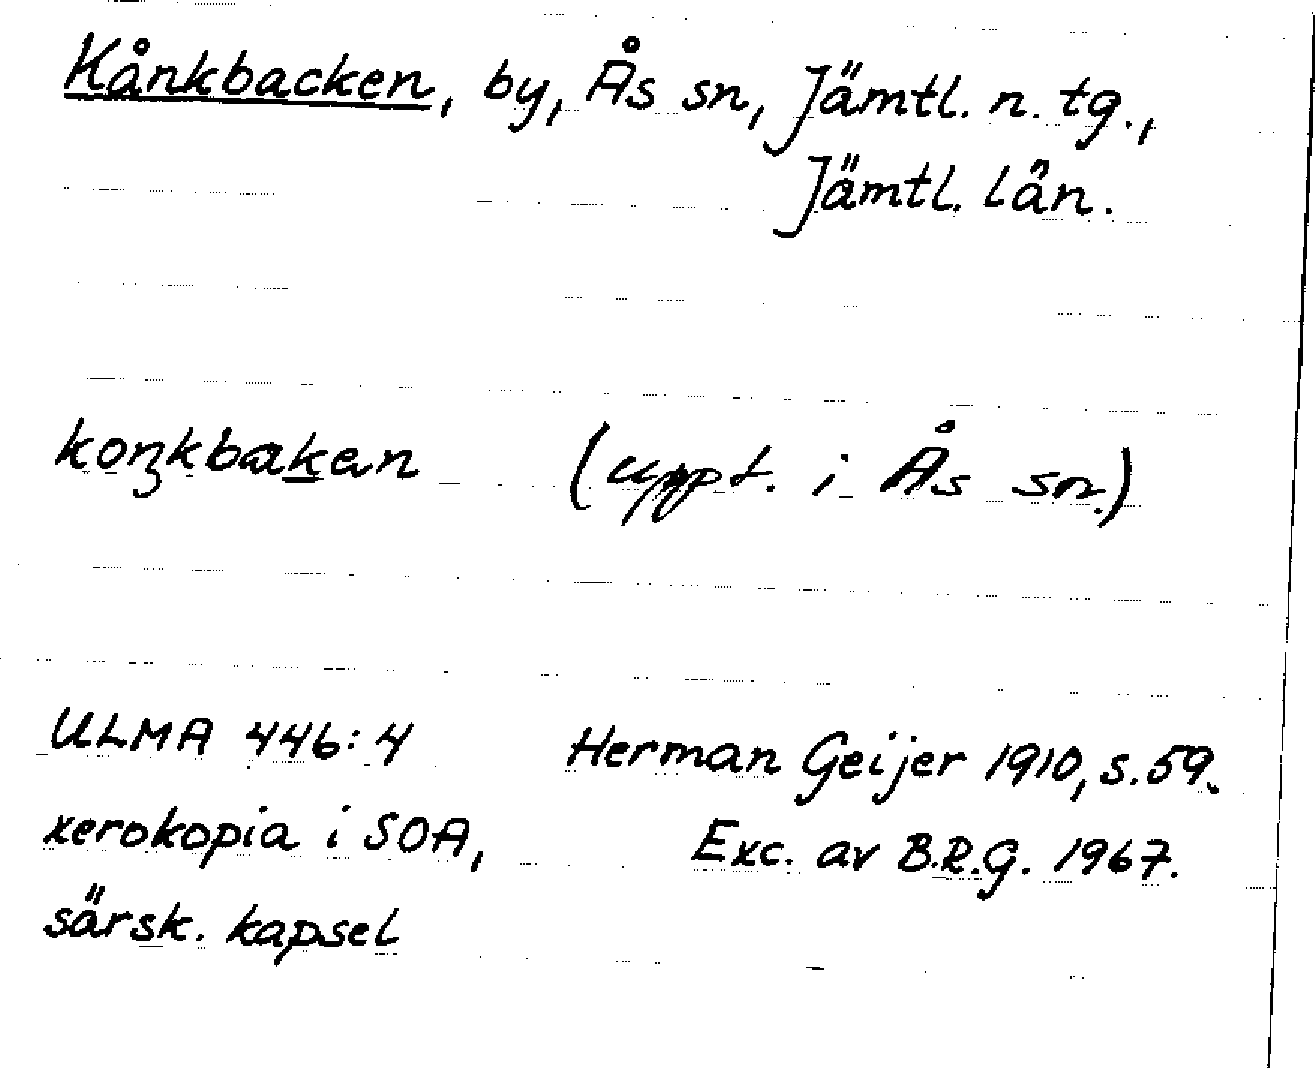 Kånkbacken, by, Ås sn, Jämtl. n. tg.,
Jämtl. län.
koŋkbakən (uppt. i Ås sn.)
ULMA 446:4 Herman Geijer 1910, s.59.
xerokopia i SOA, Exc. av B.R.G. 1967.
särsk. kapsel